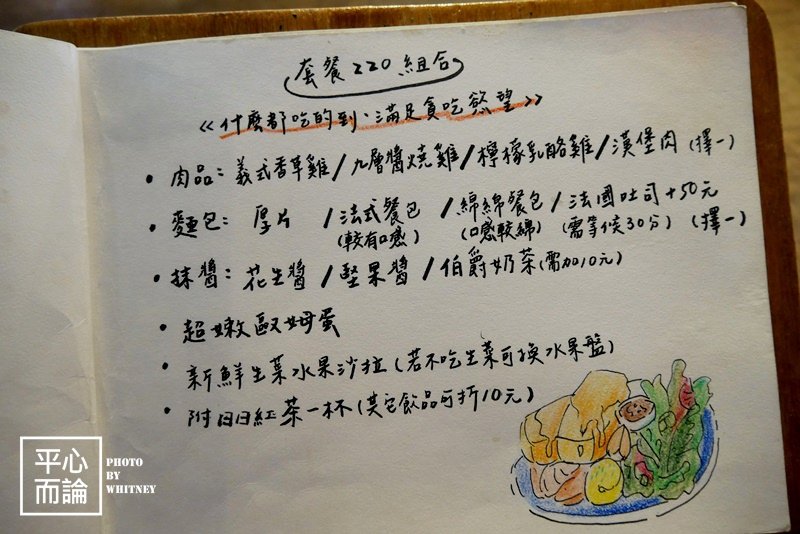 套餐220組合
《什麼都吃的到、滿足貪吃慾望》
• 肉品：義式香草雞/九層醬燒雞/檸檬乳酪雞/漢堡肉(擇一)
• 麵包：厚片 /法式餐包 /綿綿餐包 /法國吐司+50元
(較有口感) (口感較綿) (需等候30分) (擇一)
• 抹醬：花生醬/堅果醬/伯爵奶茶(需加10元)
• 超嫩歐姆蛋
• 新鮮生菜水果沙拉(若不吃生菜可換水果盤)
• 附日日紅茶一杯(其它飲品可折10元)
平心
而論
PHOTO
BY
WHITNEY